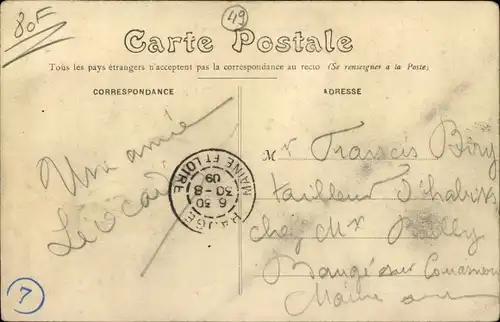 80F
49
Carte Postale
Tous les pays étrangers n'acceptent pas la correspondance au recto (Se renseigner à la Poste)
CORRESPONDANCE
ADRESSE
Une amie
BAUGE
6 30
30-8
09
MAINE ET LOIRE
Mr Francis
tailleur d'habits
chez Mr
Baugé sur Couasnon
Maine
7